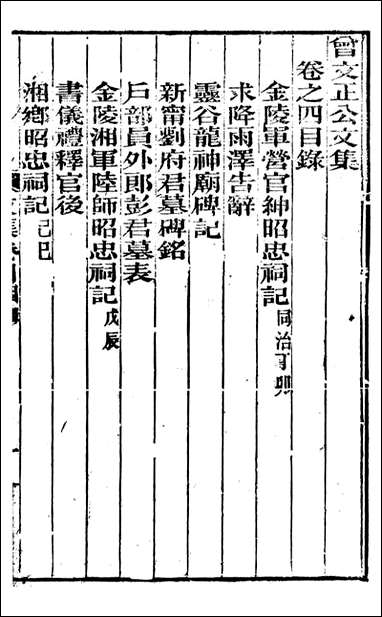 曾文正公文集
卷之四目錄
金陵軍營官紳昭忠祠記同治丁卯
求降雨澤告辭
靈谷龍神廟碑記
新甯劉府君墓碑銘
戶部員外郎彭君墓表
金陵湘軍陸師昭忠祠記戊辰
書儀禮釋官後
湘鄉昭忠祠記己巳